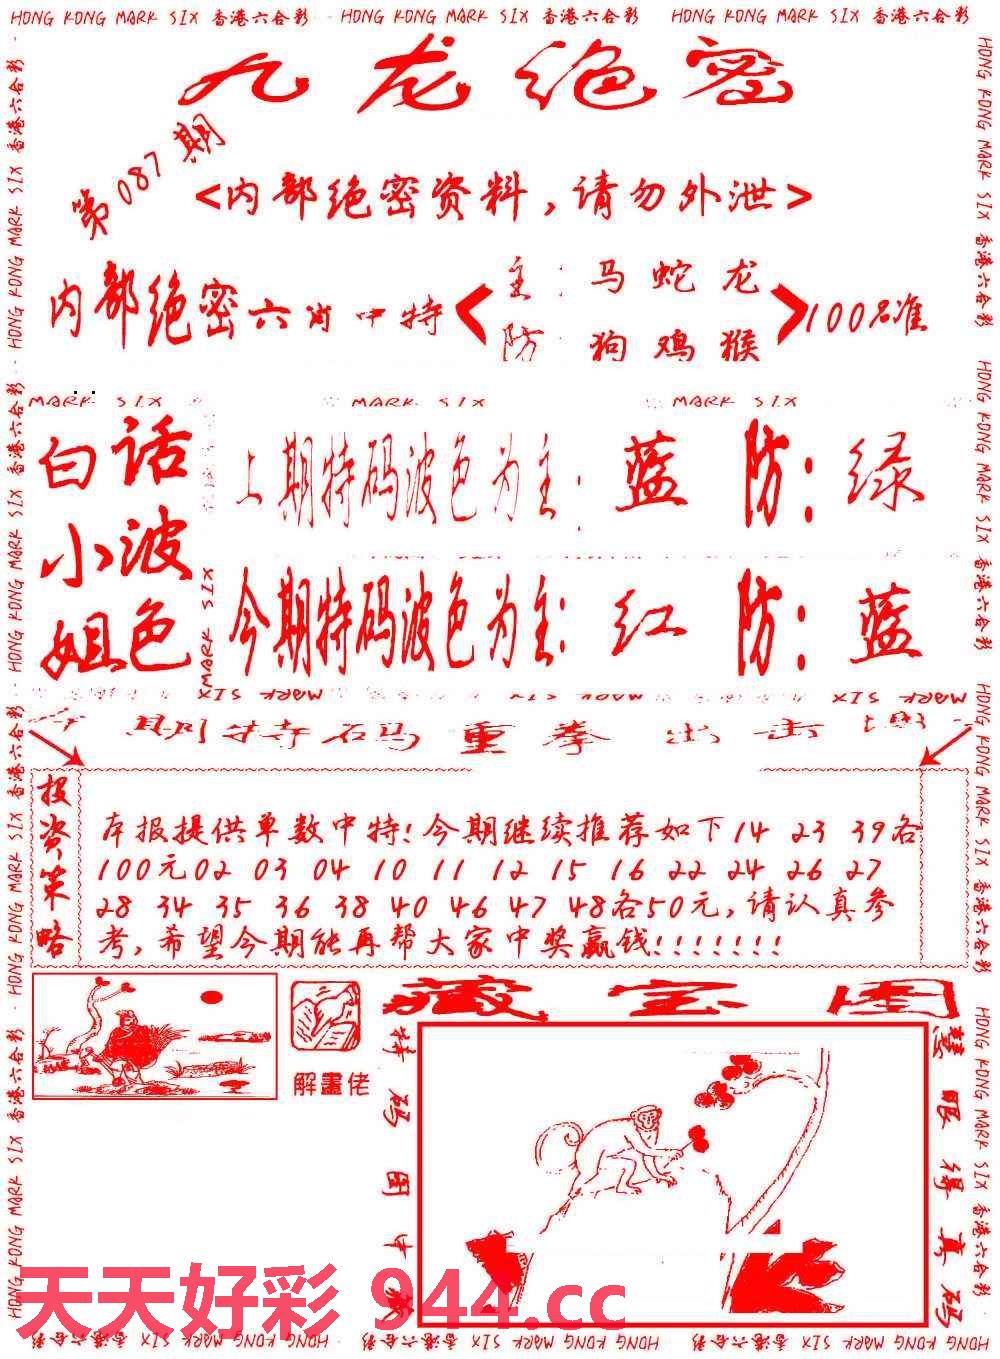 HONG KONG MARK SIX 香港六合彩 HONG KONG MARK SIX 香港六合彩 HONG KONG MARK SIX 香港六合彩
九龙绝密
第087期
<内部绝密资料,请勿外泄>
内部绝密六肖中特
主:马蛇龙
防:狗鸡猴
100%准
MARK SIX MARK SIX MARK SIX
白话
小波
姐色
上期特码波色为主:蓝 防:绿
今期特码波色为主:红 防:蓝
MARK SIX
期特码重拳出击
投资策略
本报提供单数中特!今期继续推荐如下14 23 39各
100元02 03 04 10 11 12 15 16 22 24 26 27
28 34 35 36 38 40 46 47 48各50元,请认真参
考,希望今期能再帮大家中奖赢钱!!!!!!!
藏宝图
解畫佬
特码图中
慧眼得真码
天天好彩 944.cc
HONG KONG MARK SIX 香港六合彩